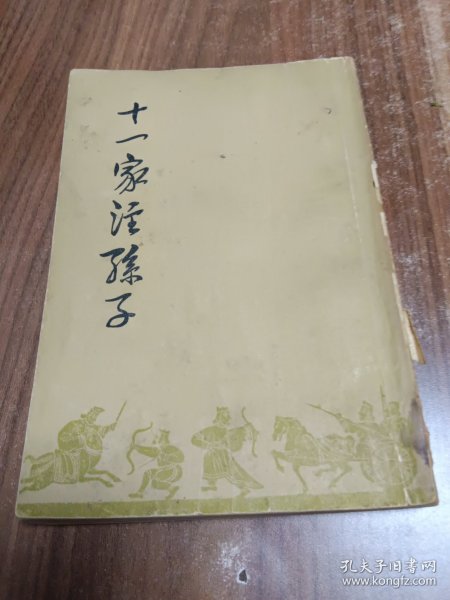 十一家注孫子
孔夫子旧书网
www.kongfz.com